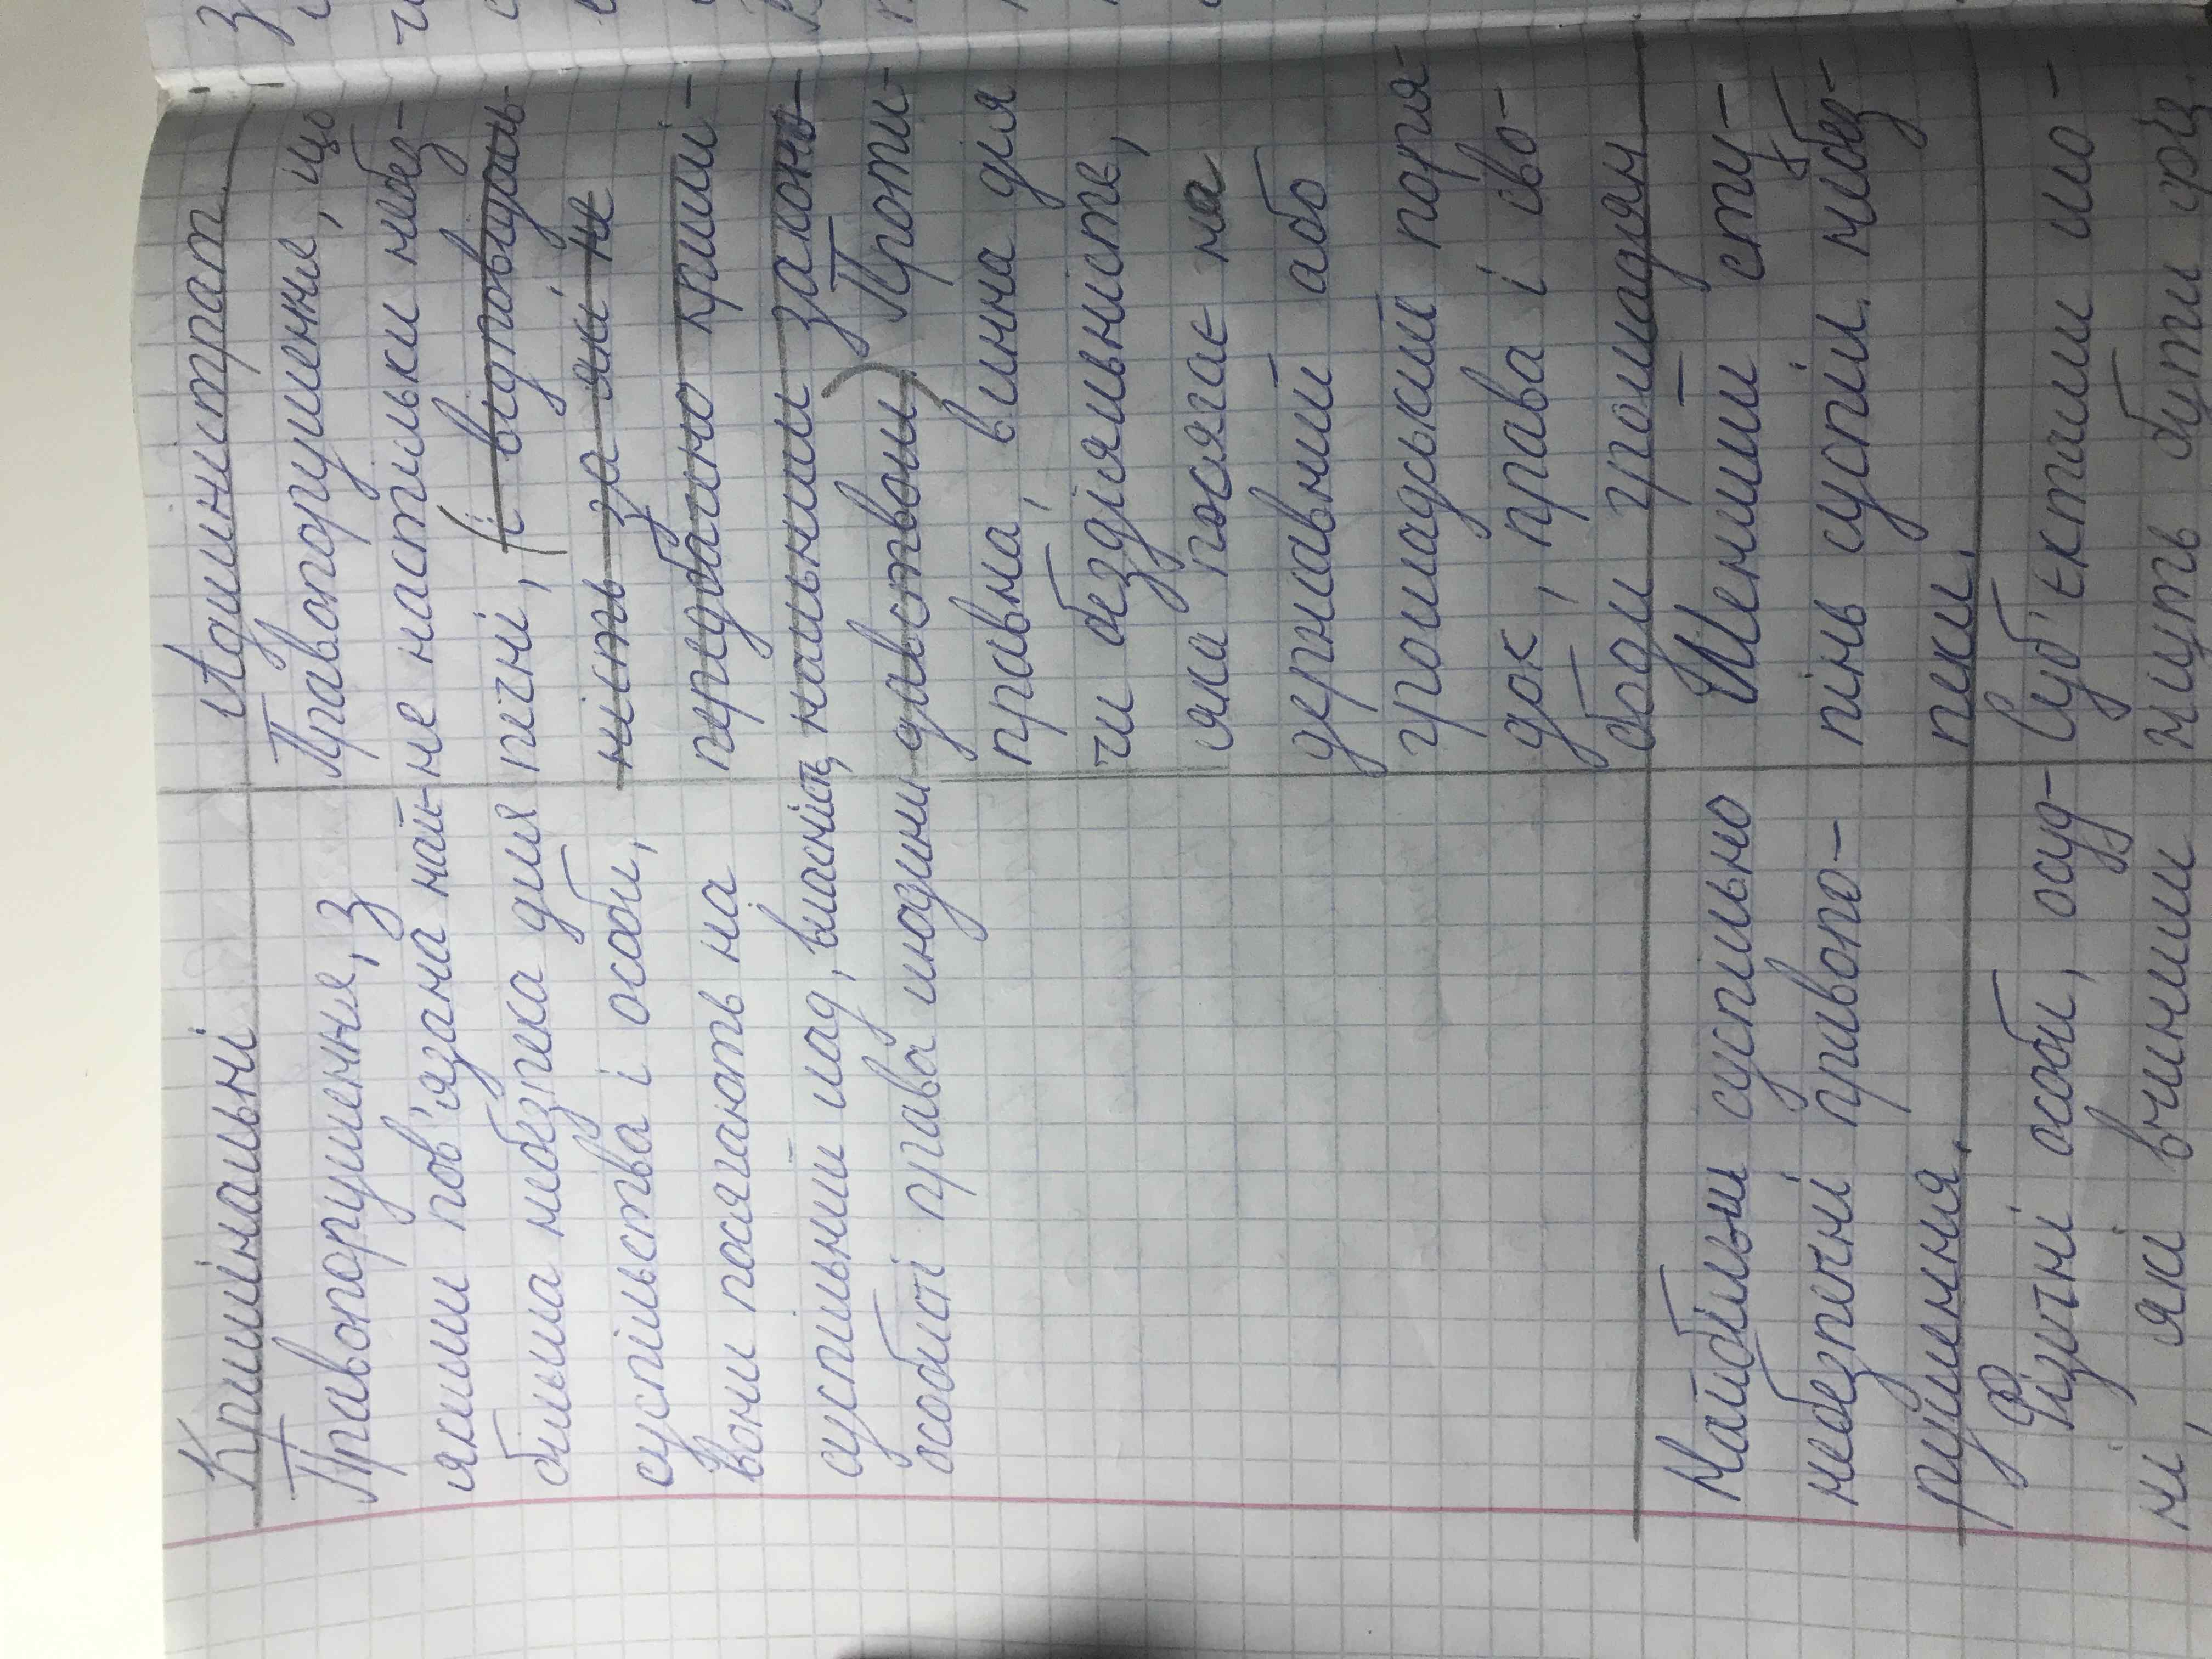 Кримінальні
Правопорушення, з
якими пов'язана най-
більша небезпека для
суспільства і особи,
вони посягають на
суспільний лад, власність,
особисті права людини
Адміністрат.
Правопорушення, що
не настільки небез-
печні, (і відповідаль-
ність за які не
передбачено кримі-
нальним законо-
давством) Проти-
правна, винна дія
чи бездіяльність,
яка посягає на
державний або
громадський поря-
док, права і сво-
боди громадян
Найбільш суспільно
небезпечні правопо-
рушення.
Менший сту-
пінь суспіл. небез-
пеки.
Фізичні особи, осуд-
ні, які вчинили
Суб'єктами мо-
жуть бути